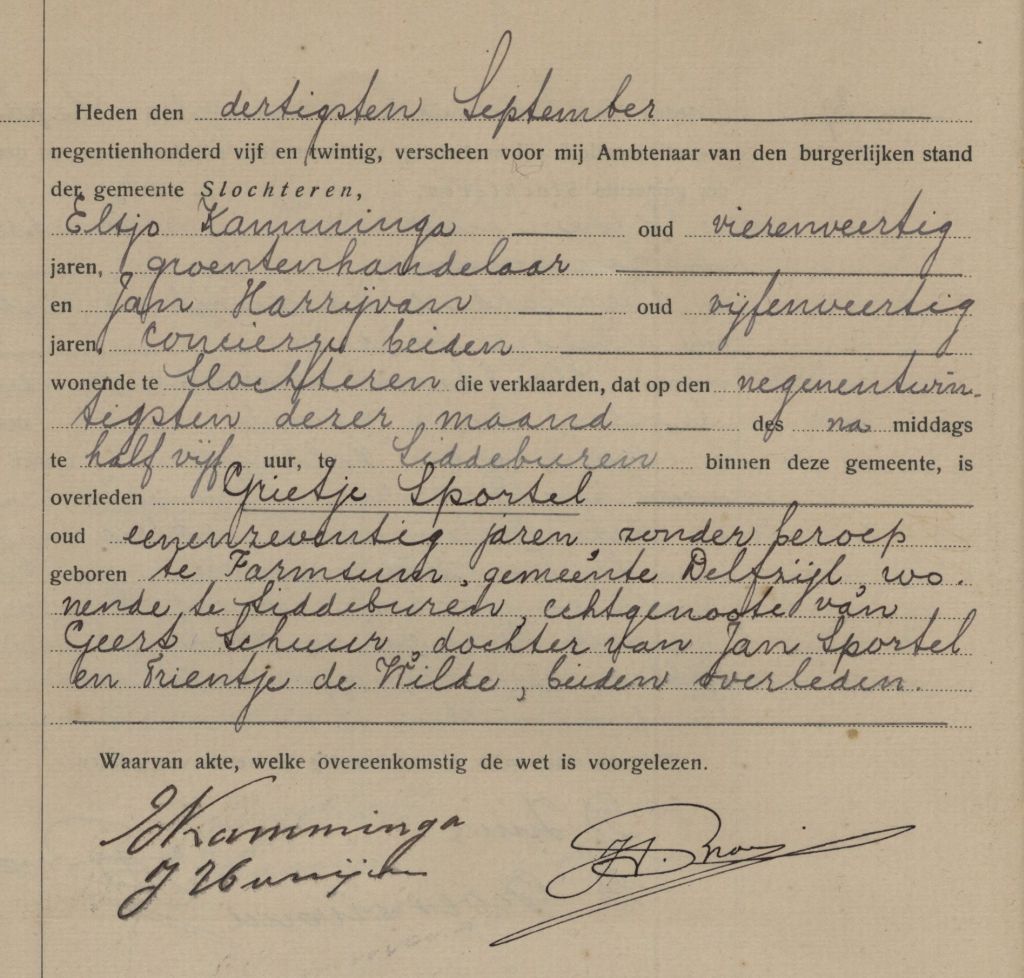 Heden den dertigsten September
negentienhonderd vijf en twintig, verscheen voor mij Ambtenaar van den burgerlijken stand
der gemeente Slochteren,
Eltjo Kamminga oud vierenveertig
jaren, groentenhandelaar
en Jan Harrijvan oud vijfenveertig
jaren, concierge beiden
wonende te Slochteren die verklaarden, dat op den negenentwin-
tigsten dezer maand des na middags
te half vijf uur, te Siddeburen binnen deze gemeente, is
overleden Grietje Sportel
oud eenenzeventig jaren, zonder beroep
geboren te Farmsum, gemeente Delfzijl, wo-
nende te Siddeburen, echtgenoote van
Geert Schuur, dochter van Jan Sportel
en Trientje de Wilde, beiden overleden.
Waarvan akte, welke overeenkomstig de wet is voorgelezen.
EKamminga